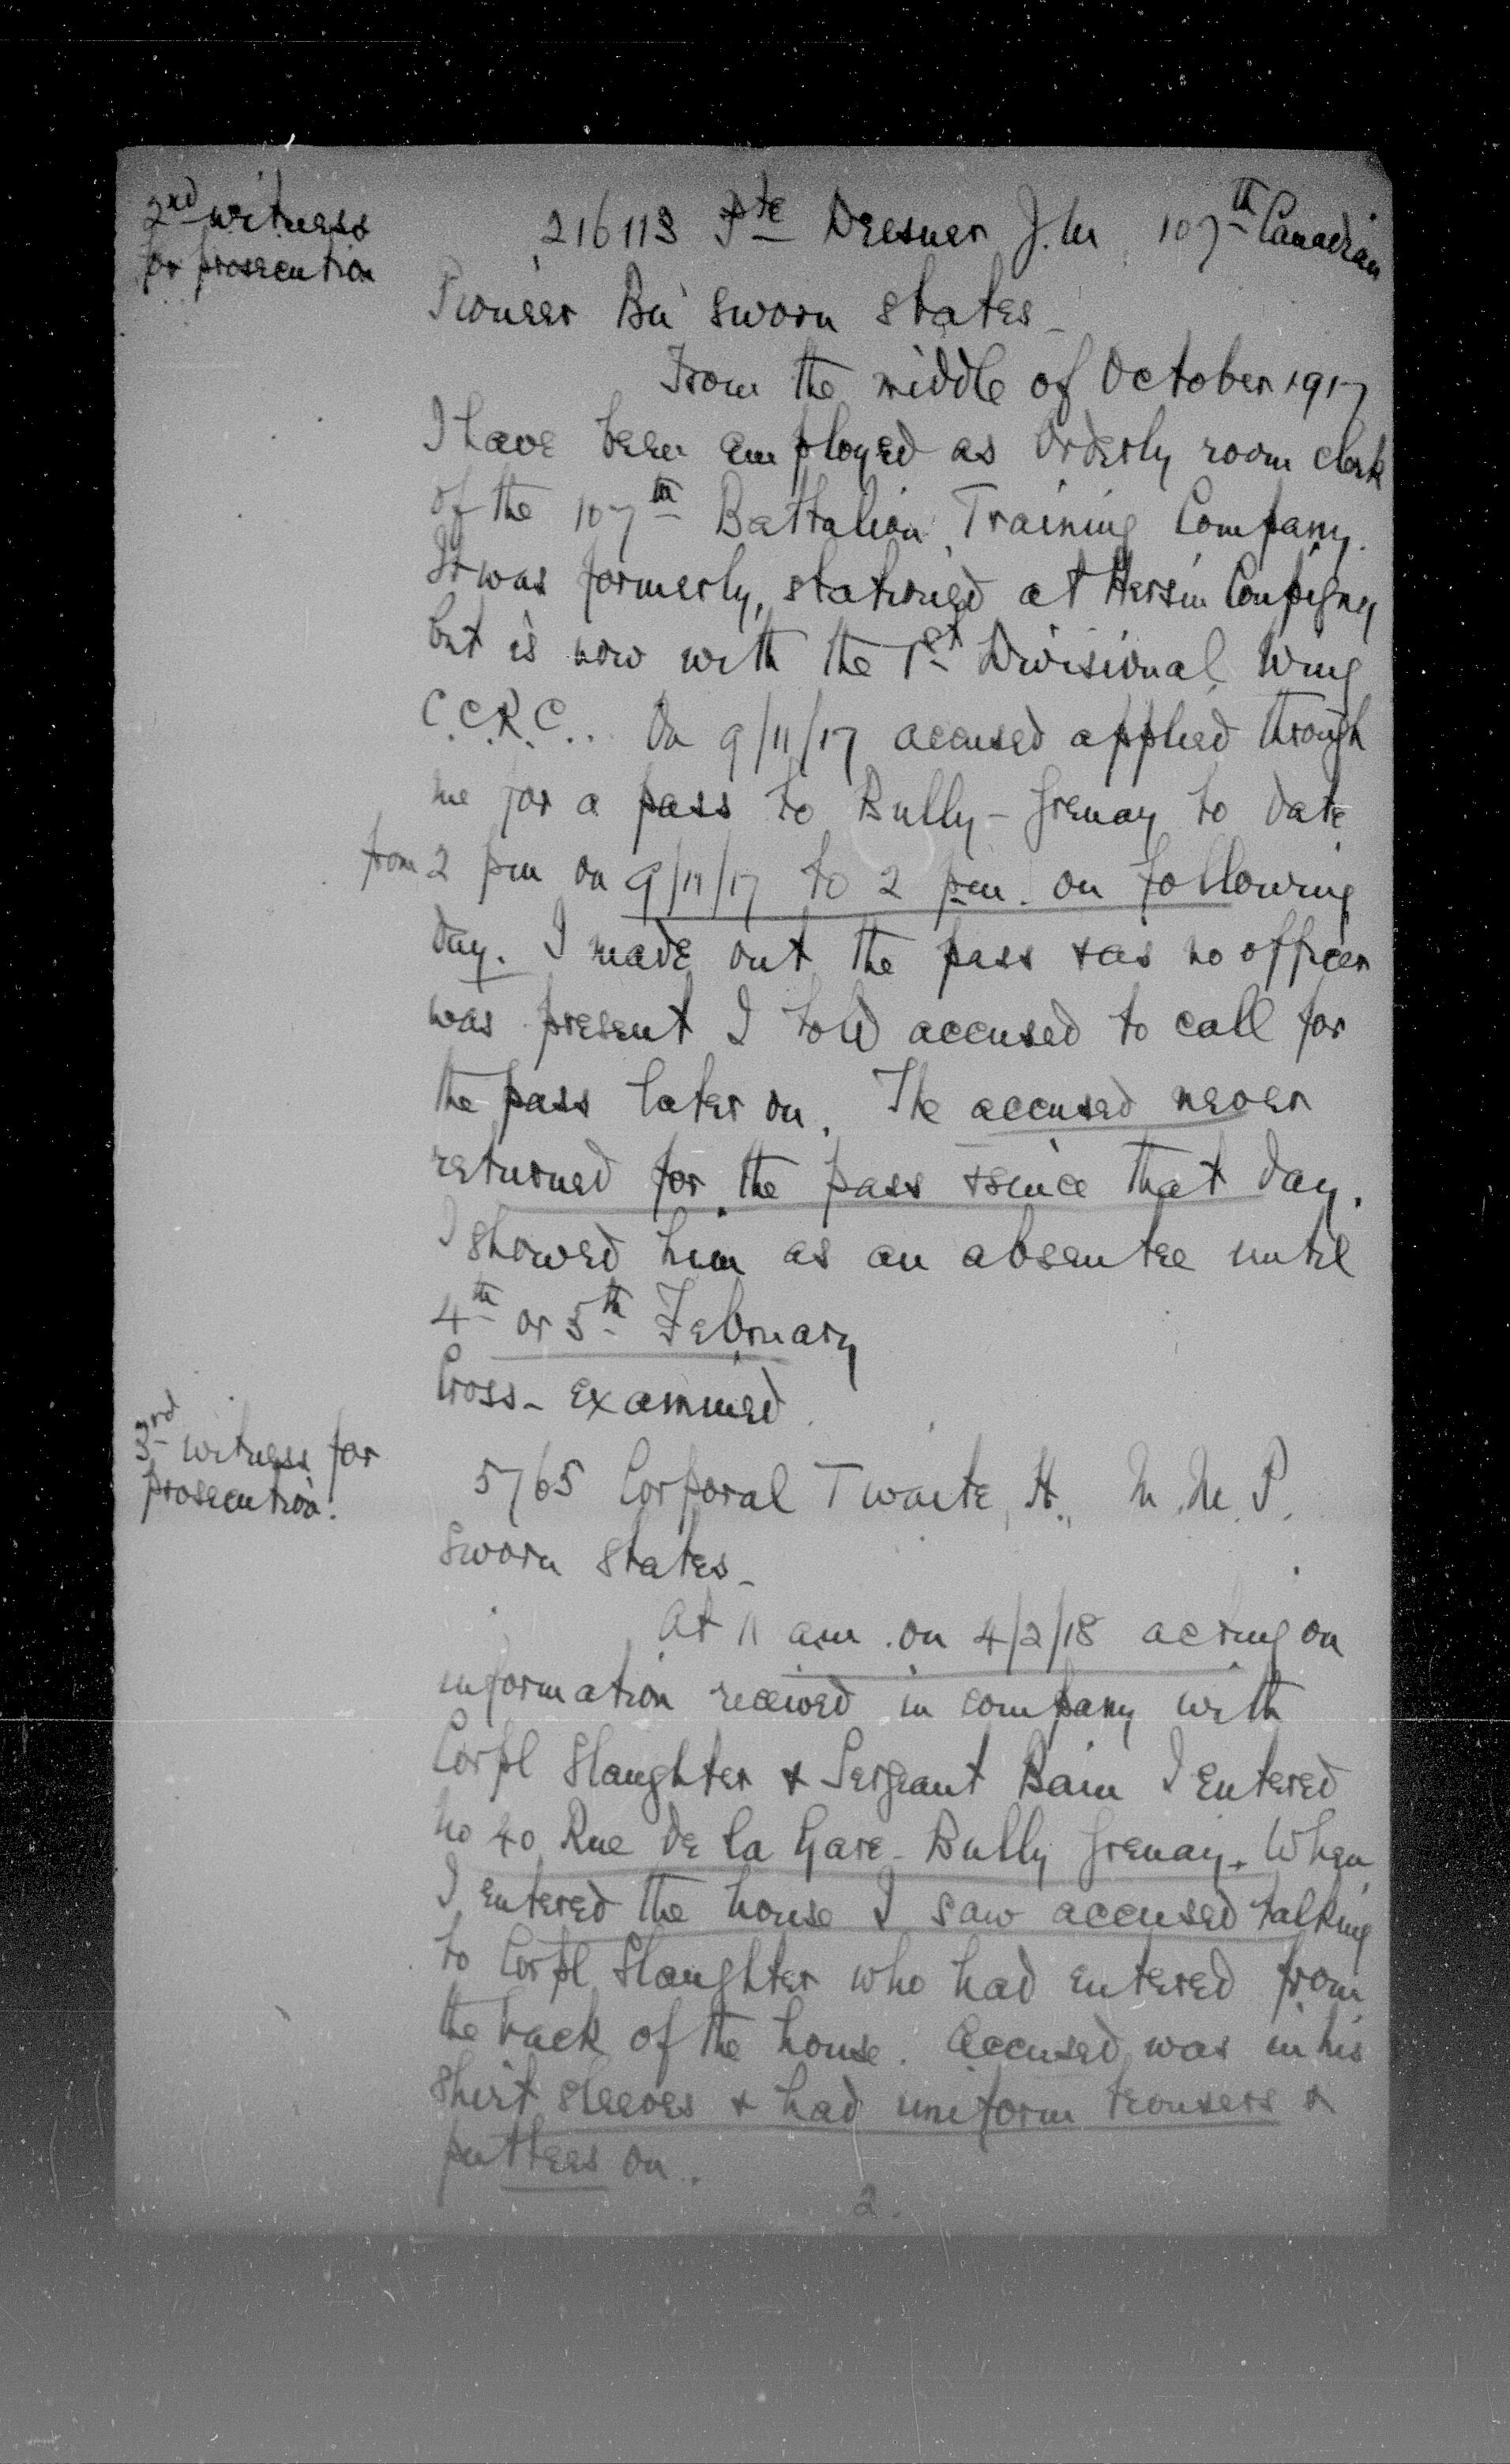 2nd witness
for prosecution
216113 Pte Dressner J.M. 107th Canadian
Pioneer Bn sworn states -
From the middle of October 1917
I have been employed as Orderly room clerk
of the 107th Battalion Training Company.
It was formerly stationed at Hersin Coupigny
but is now with the 1st Divisional Wing
C.C.R.C.. On 9/11/17 accused applied through
me for a pass to Bully-Grenay to date
from 2 pm on 9/11/17 to 2 pm. on following
day. I made out the pass & as no officer
was present I told accused to call for
the pass later on. The accused never
returned for the pass & since that day.
I showed him as an absentee until
4th or 5th February
Cross-examined.
3rd witness for
prosecution.
5765 Corporal Twaite, H., M.M.P.
sworn states -
At 11 am. on 4/2/18 acting on
information received in company with
Corpl Slaughter & Sergeant Bain I entered
No 40 Rue de la Gare - Bully Grenay. When
I entered the house I saw accused talking
to Corpl Slaughter who had entered from
the back of the house. Accused was in his
shirt sleeves & had uniform trousers &
puttees on.
2.